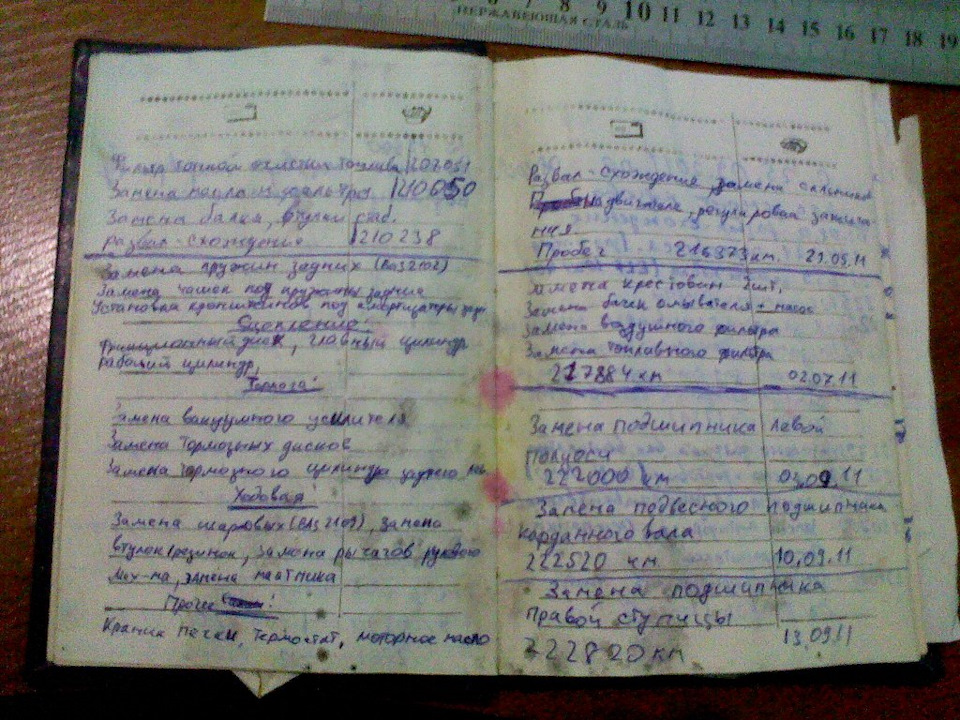 6 7 8 9 10 11 12 13 14 15 16 17 18 19
НЕРЖАВЕЮЩАЯ СТАЛЬ
Фильтр тонкой очистки топлива
Замена масла и фильтра 210650
Замена балки, втулки стаб.
развал-схождение 210238
Замена пружин задних
Замена чашек под пружины задние
Установка кронштейнов под амортизаторы
Сцепление.
Фрикционный диск, главный цилиндр
рабочий цилиндр,
Тормоза:
Замена вакуумного усилителя
Замена тормозных дисков
Замена тормозного цилиндра заднего лев
Ходовая:
Замена шаровых (ВАЗ 2109), замена
втулок, резинок, замена рычагов рулевого
мех-ма, замена маятника
Прочее:
Краник печки, термостат, моторное масло
Развал-схождение, замена сальников
двигателя, регулировка зажига-
ния.
Пробег 216373 км. 21.05.11
Замена крестовин 2шт.
Замена бачок омывателя + насос
Замена воздушного фильтра
Замена топливного фильтра
217884 км 02.07.11
Замена подшипника левой
полуоси
222000 км 03.09.11
Замена подвесного подшипника
карданного вала
222520 км 10.09.11
Замена подшипника
правой ступицы
222820 км 13.09.11